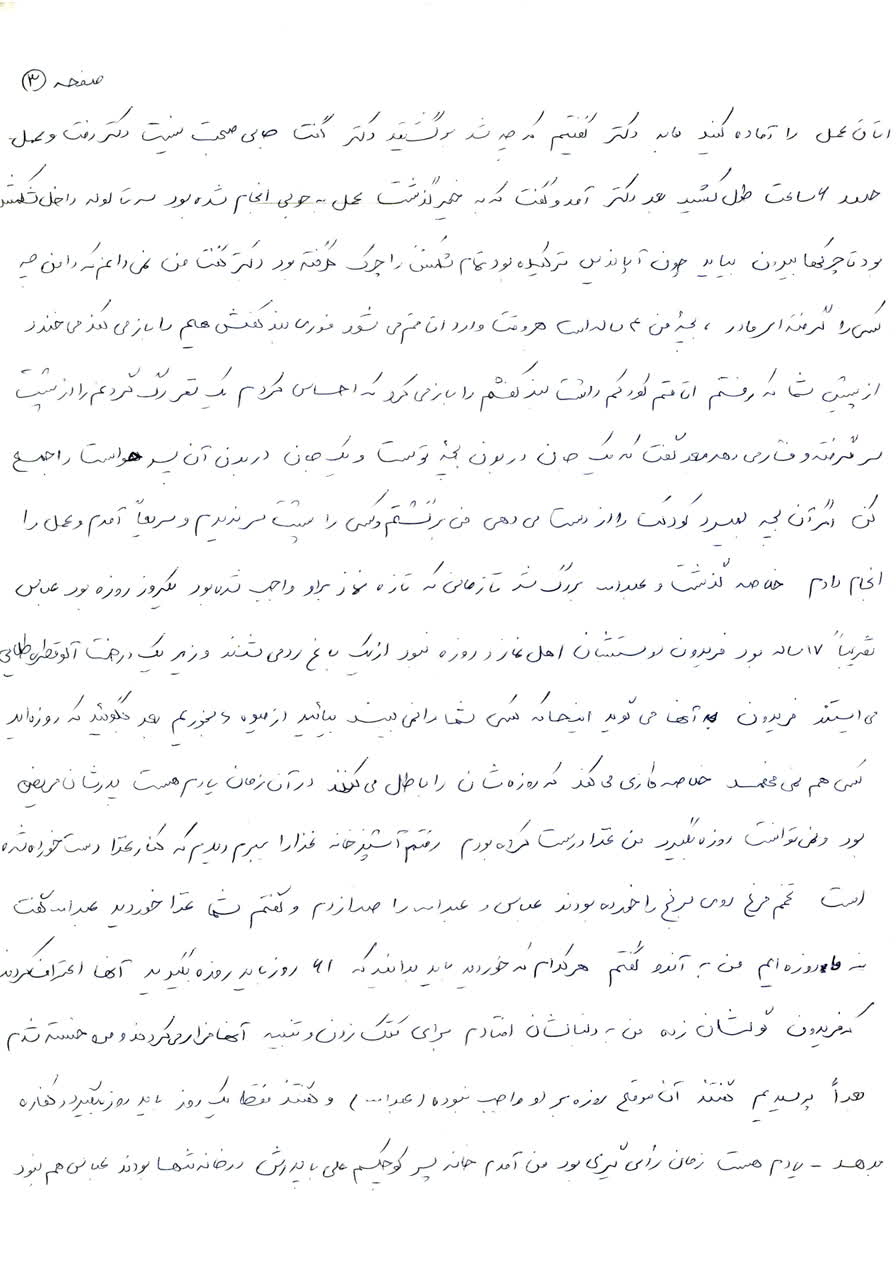 صفحه ۳
اتاق عمل را آماده کنید ما به دکتر گفتیم که چه شد برگشتید دکتر گفت جای صحبت نیست دکتر رفت و عمل
حدود ۶ ساعت طول کشید بعد دکتر آمد و گفت که به خیر گذشت عمل به خوبی انجام شده بود سه تا لوله داخل شکمش
بود تا چرکها بیرون بیاید چون آپاندیس ترکیده بود تمام شکمش را چرک گرفته بود دکتر گفت من نمی دانم که دامن چه
کسی را گرفته ای مادر ، بچۀ من ۴ ساله است هر وقت وارد اتاقم می شود فوری بند کفش هایم را باز می کند می خندد
از پیش شما که رفتم اتاقم کودکم داشت بند کفشم را باز می کرد که احساس کردم یک نفر رگ گردنم را از پشت
سر گرفته و فشار می دهد بعد گفت که یک جان در بدن بچۀ توست و یک جان در بدن آن پسر هواست را جمع
کن اگر آن بچه بمیرد کودکت را از دست می دهی من برگشتم و کسی را پشت سر ندیدم و سریعاً آمدم و عمل را
انجام دادم خلاصه گذشت و عبداله بزرگ شد تا زمانی که تازه نماز براو واجب شده بود یکروز روزه بود عباس
تقریباً ۱۷ ساله بود فریدون دوستشان اهل نماز و روزه نبود از یک باغ رد می شدند و زیر یک درخت آلو قطره طلایی
می ایستند فریدون به آنها می گوید اینجا که کسی شما را نمی بیند بیائید از میوه بخوریم بعد بگوئید که روزه اید
کسی هم نمی فهمد خلاصه کاری می کند که روزه شان را باطل می کنند در آن زمان یادم هست پدرشان مریض
بود و نمی توانست روزه بگیرد من غذا درست کرده بودم رفتم آشپزخانه غذا را ببرم دیدم که کنار غذا دست خورده شده
است تخم مرغ روی برنج را خورده بودند عباس و عبداله را صدا زدم و گفتم شما غذا خوردید عبداله گفت
نه ما روزه ایم من به آندو گفتم هر کدام که خوردید باید بدانید که ۶۱ روز باید روزه بگیرید آنها اعتراف کردند
که فریدون گولشان زده من به دنبالشان افتادم برای کتک زدن و تنبیه آنها فرار می کردند و من خسته شدم
بعداً پرسیدیم گفتند آن موقع روزه بر او واجب نبوده (عبداله) و گفتند فقط یک روز باید روزه بگیرد و کفاره
بدهد - یادم هست زمان رأی گیری بود من آمدم خانه پسر کوچکم علی با پدرش در خانه تنها بودند عباس هم نبود